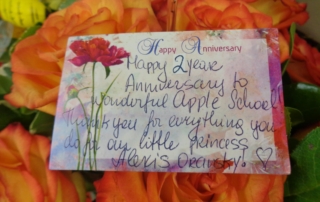 Happy Anniversary
Happy 2 year
Anniversary to
wonderful Apple School!
Thank you for everything you
do for our little princess
Alexis